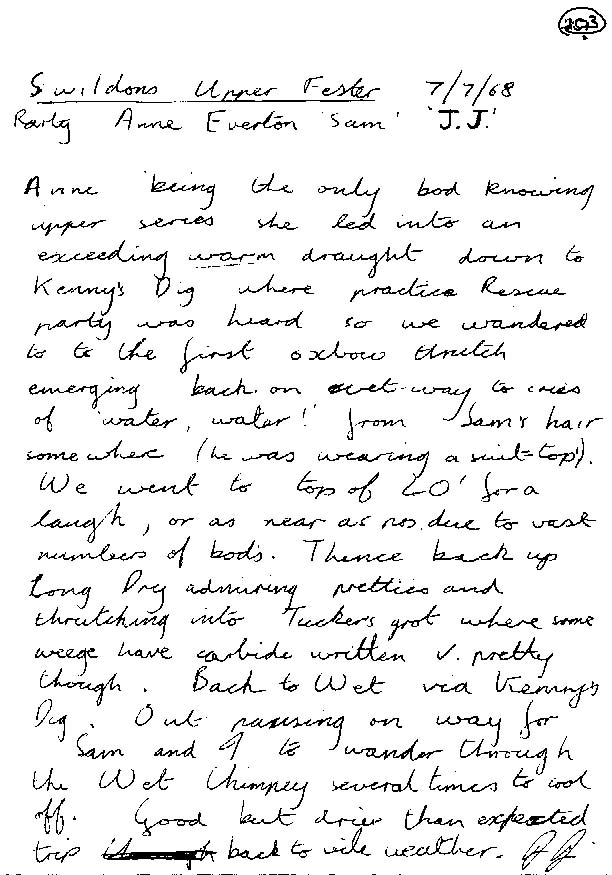 203
Swildons Upper Fester 7/7/68
Party Anne Everton 'Sam' 'J.J.'
Anne being the only bod knowing
upper series she led into an
exceeding warm draught down to
Kenny's Dig where practice Rescue
party was heard so we wandered
to to the first oxbow thrutch
emerging back on wet-way to cries
of 'water, water!' from Sam's hair
somewhere (he was wearing a suit-top').
We went to top of 20' for a
laugh, or as near as pos. due to vast
numbers of bods. Thence back up
Long Dry admiring pretties and
thrutching into Tuckers grot where some
weege have carbide written v. pretty
though. Back to Wet via Kenny's
Dig. Out pausing on way for
Sam and I to wander through
the Wet Chimney several times to cool
off. Good but drier than expected
trip back to vile weather. JJ.